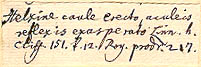 Helxine caule erecto, aculeis
reflexis exasperato Linn. h.
cliff. 151. V. 12. Roy. prodr. 217.